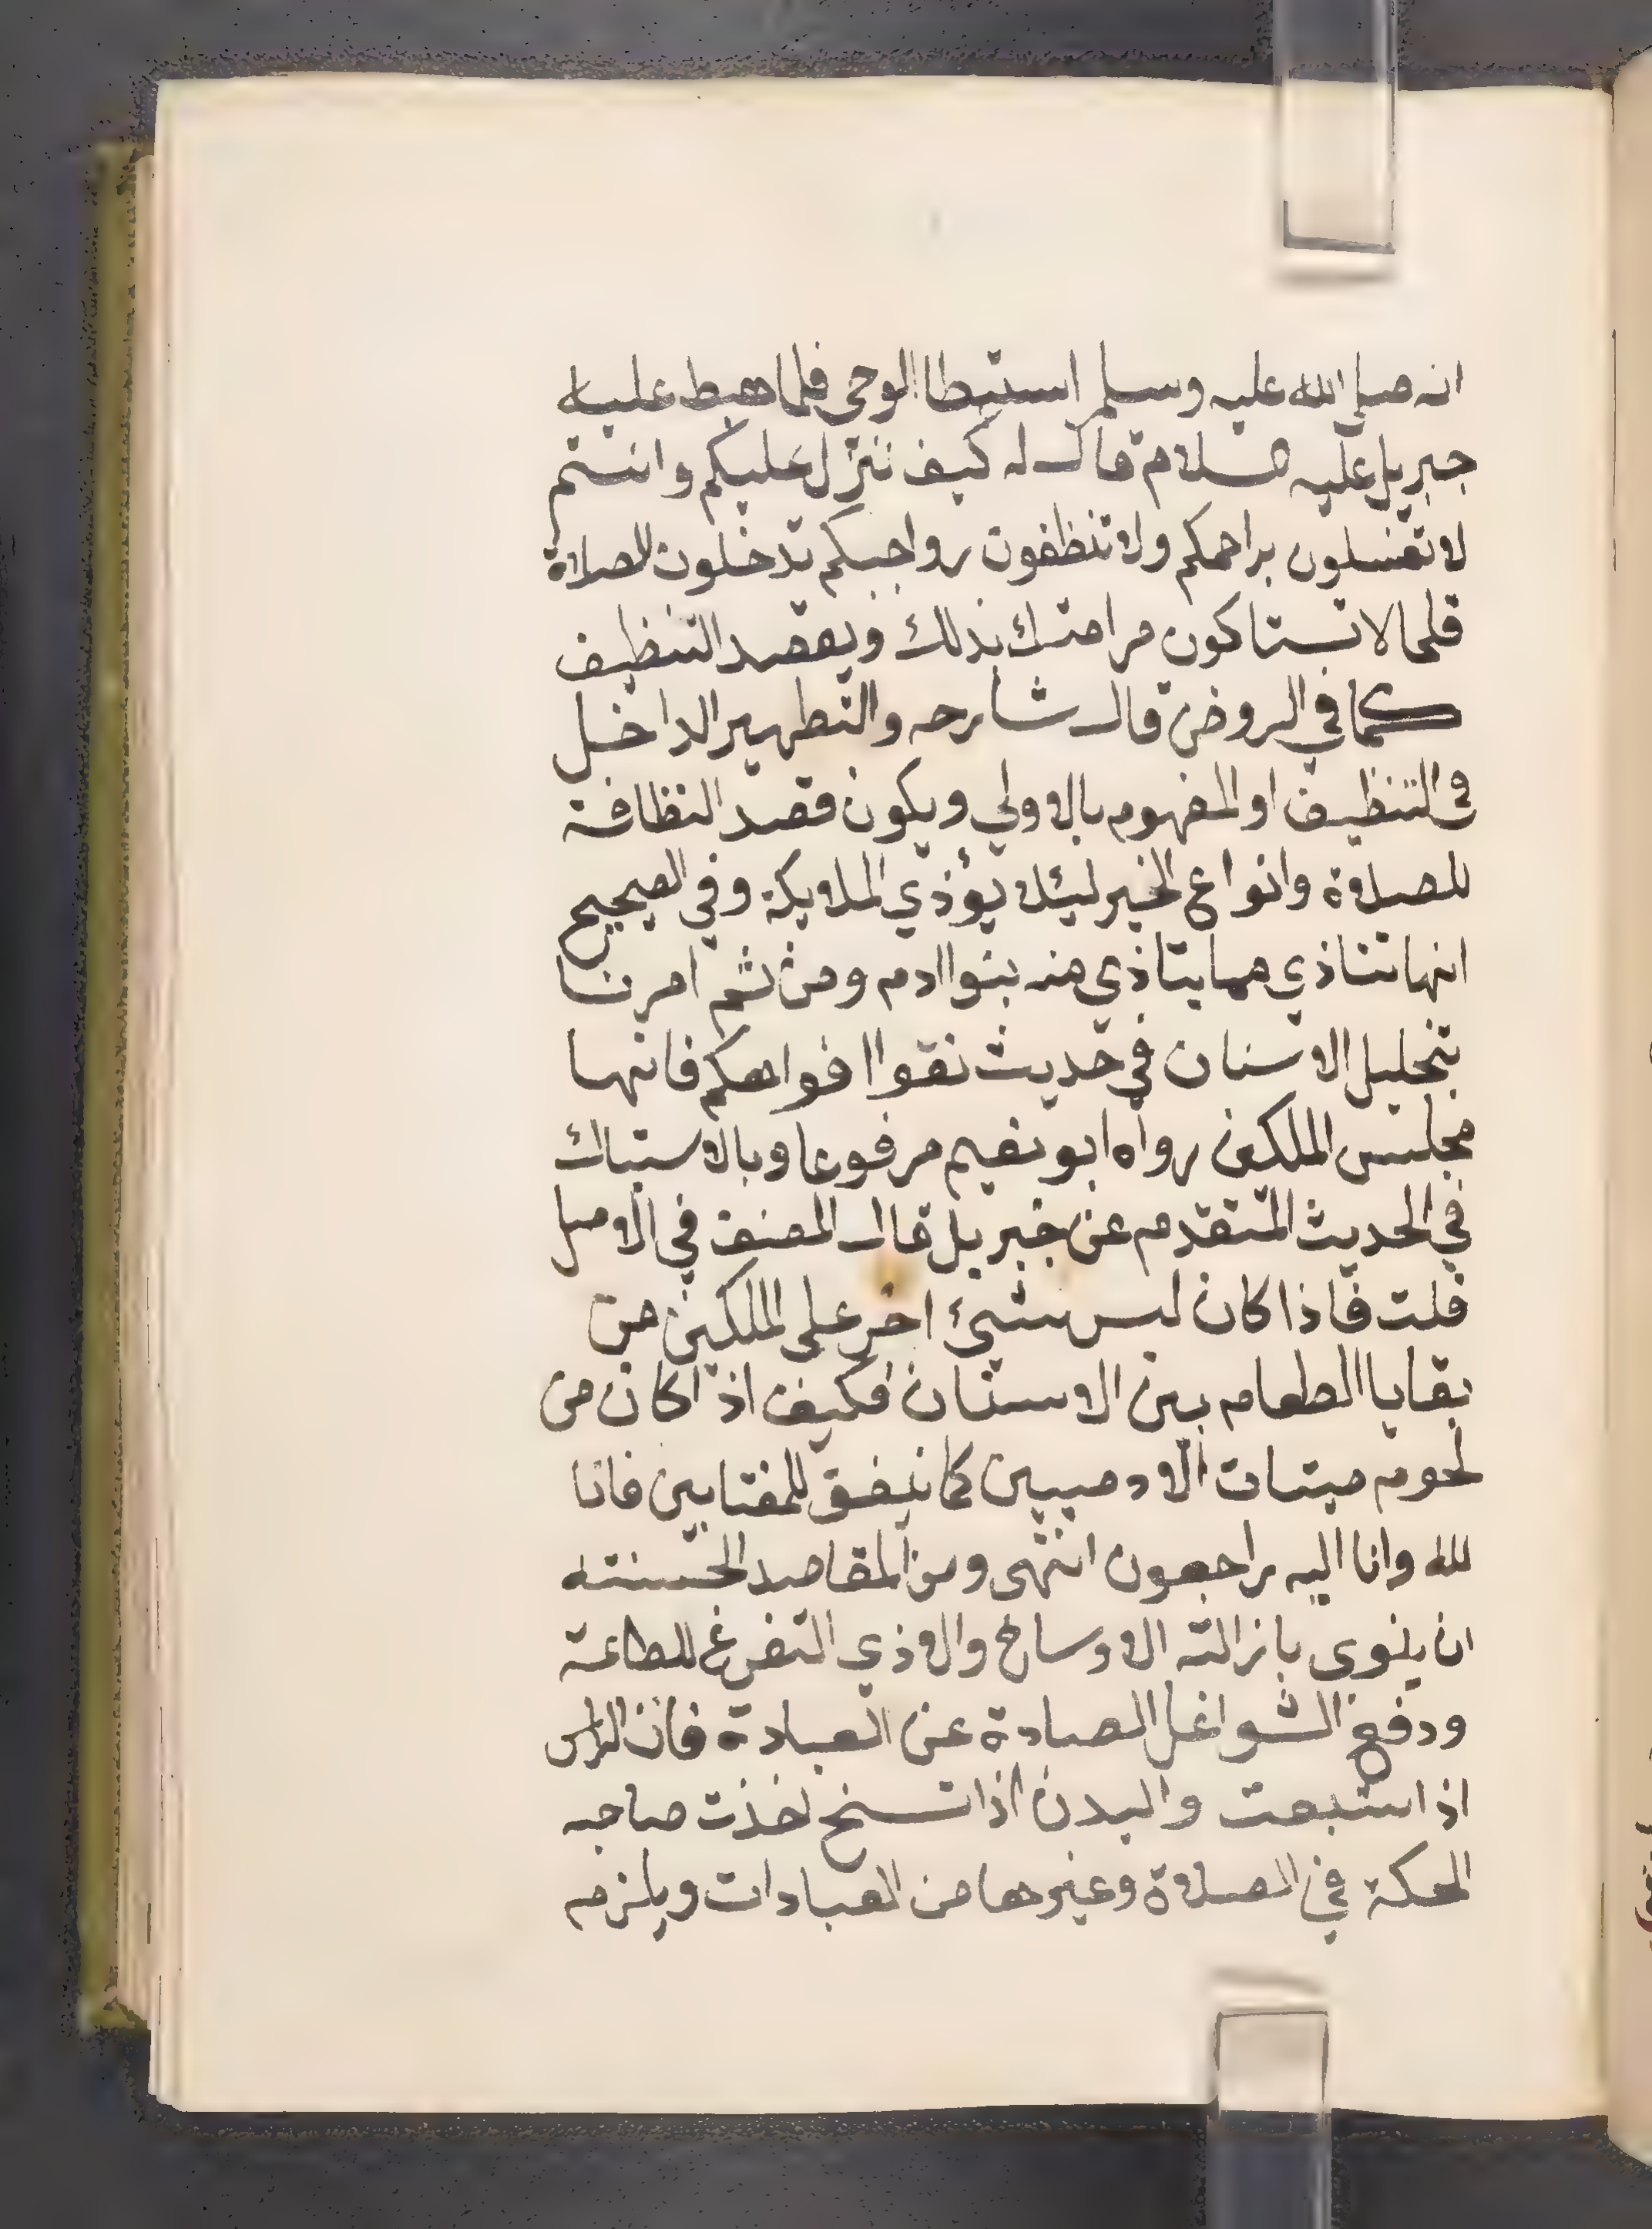 انه صلى الله عليه وسلم استبطا الوحي فلما هبط عليه
جبريل عليه السلام قال له كيف ننزل عليكم وانتم
لا تغسلون براجمكم ولا تنظفون رواجبكم تدخلون للصلاة
قلحا لا تستاكون مر امتك بذلك ويقصد التنظيف
كما في الروض قال شارحه والتطهير الداخل
في التنظيف او المفهوم بالاولي ويكون قصد النظافة
للصلاة وانواع الخير ليئلا يؤذي الملايكة وفي الصحيح
انها تتاذي مما يتاذي منه بنوا ادم ومن ثم امرنا
بتخليل الاسنان في حديث نقوا افواهكم فانها
مجلس الملكين رواه ابو نعيم مرفوعا وبالاستياك
في الحديث المتقدم عن جبريل قال المصنف في الاصل
قلت فاذا كان ليس شيئ اخر على الملكين من
بقايا الطعام بين الاسنان فكيف اذا كان من
لحوم ميتات الادميين كما يتفق للمغتابين فانا
لله وانا اليه راجعون انتهى ومن المقاصد الحسنته
ان ينوى بازالته الاوساخ والاذي التفرغ للطاعة
ودفع الشواغل الصادة عن العبادة فان الراس
اذا شعت والبدن اذا تسخ اخذت صاحبه
الحكة في الصلاة وغيرها من العبادات ويلزمه